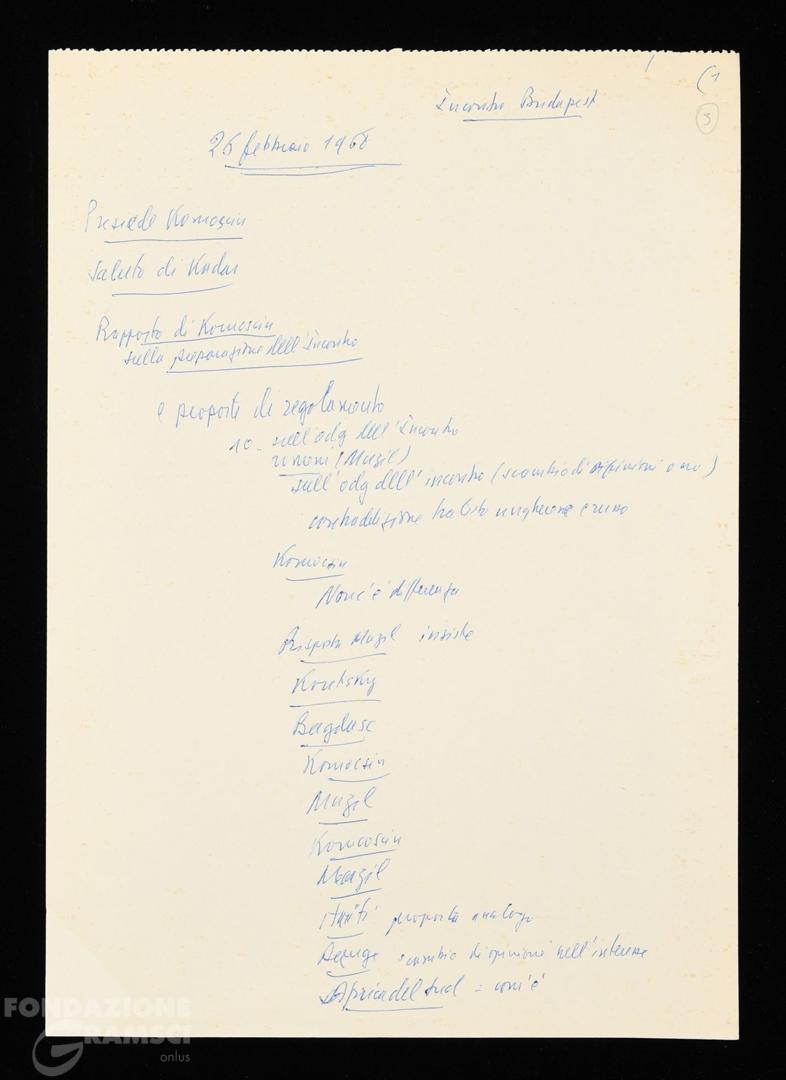 (1
5
Incontro Budapest
26 febbraio 1968
Presiede Komocsin
Saluto di Kadar
Rapporto di Komocsin
sulla preparazione dell'Incontro
e proposte di regolamento
1o - sull'odg dell'Incontro
(Mizil)
sull'odg dell'incontro (scambio di opinioni o no)
contraddizione tra testo ungherese e russo
Komocsin
Non c'è differenza
Risposta Mizil insiste
Bagdasc
Komocsin
Mizil
Komocsin
Mizil
Haiti proposta analoga
scambio di opinione nell'interesse
Africa del Sud = com'è
FONDAZIONE
GRAMSCI
onlus